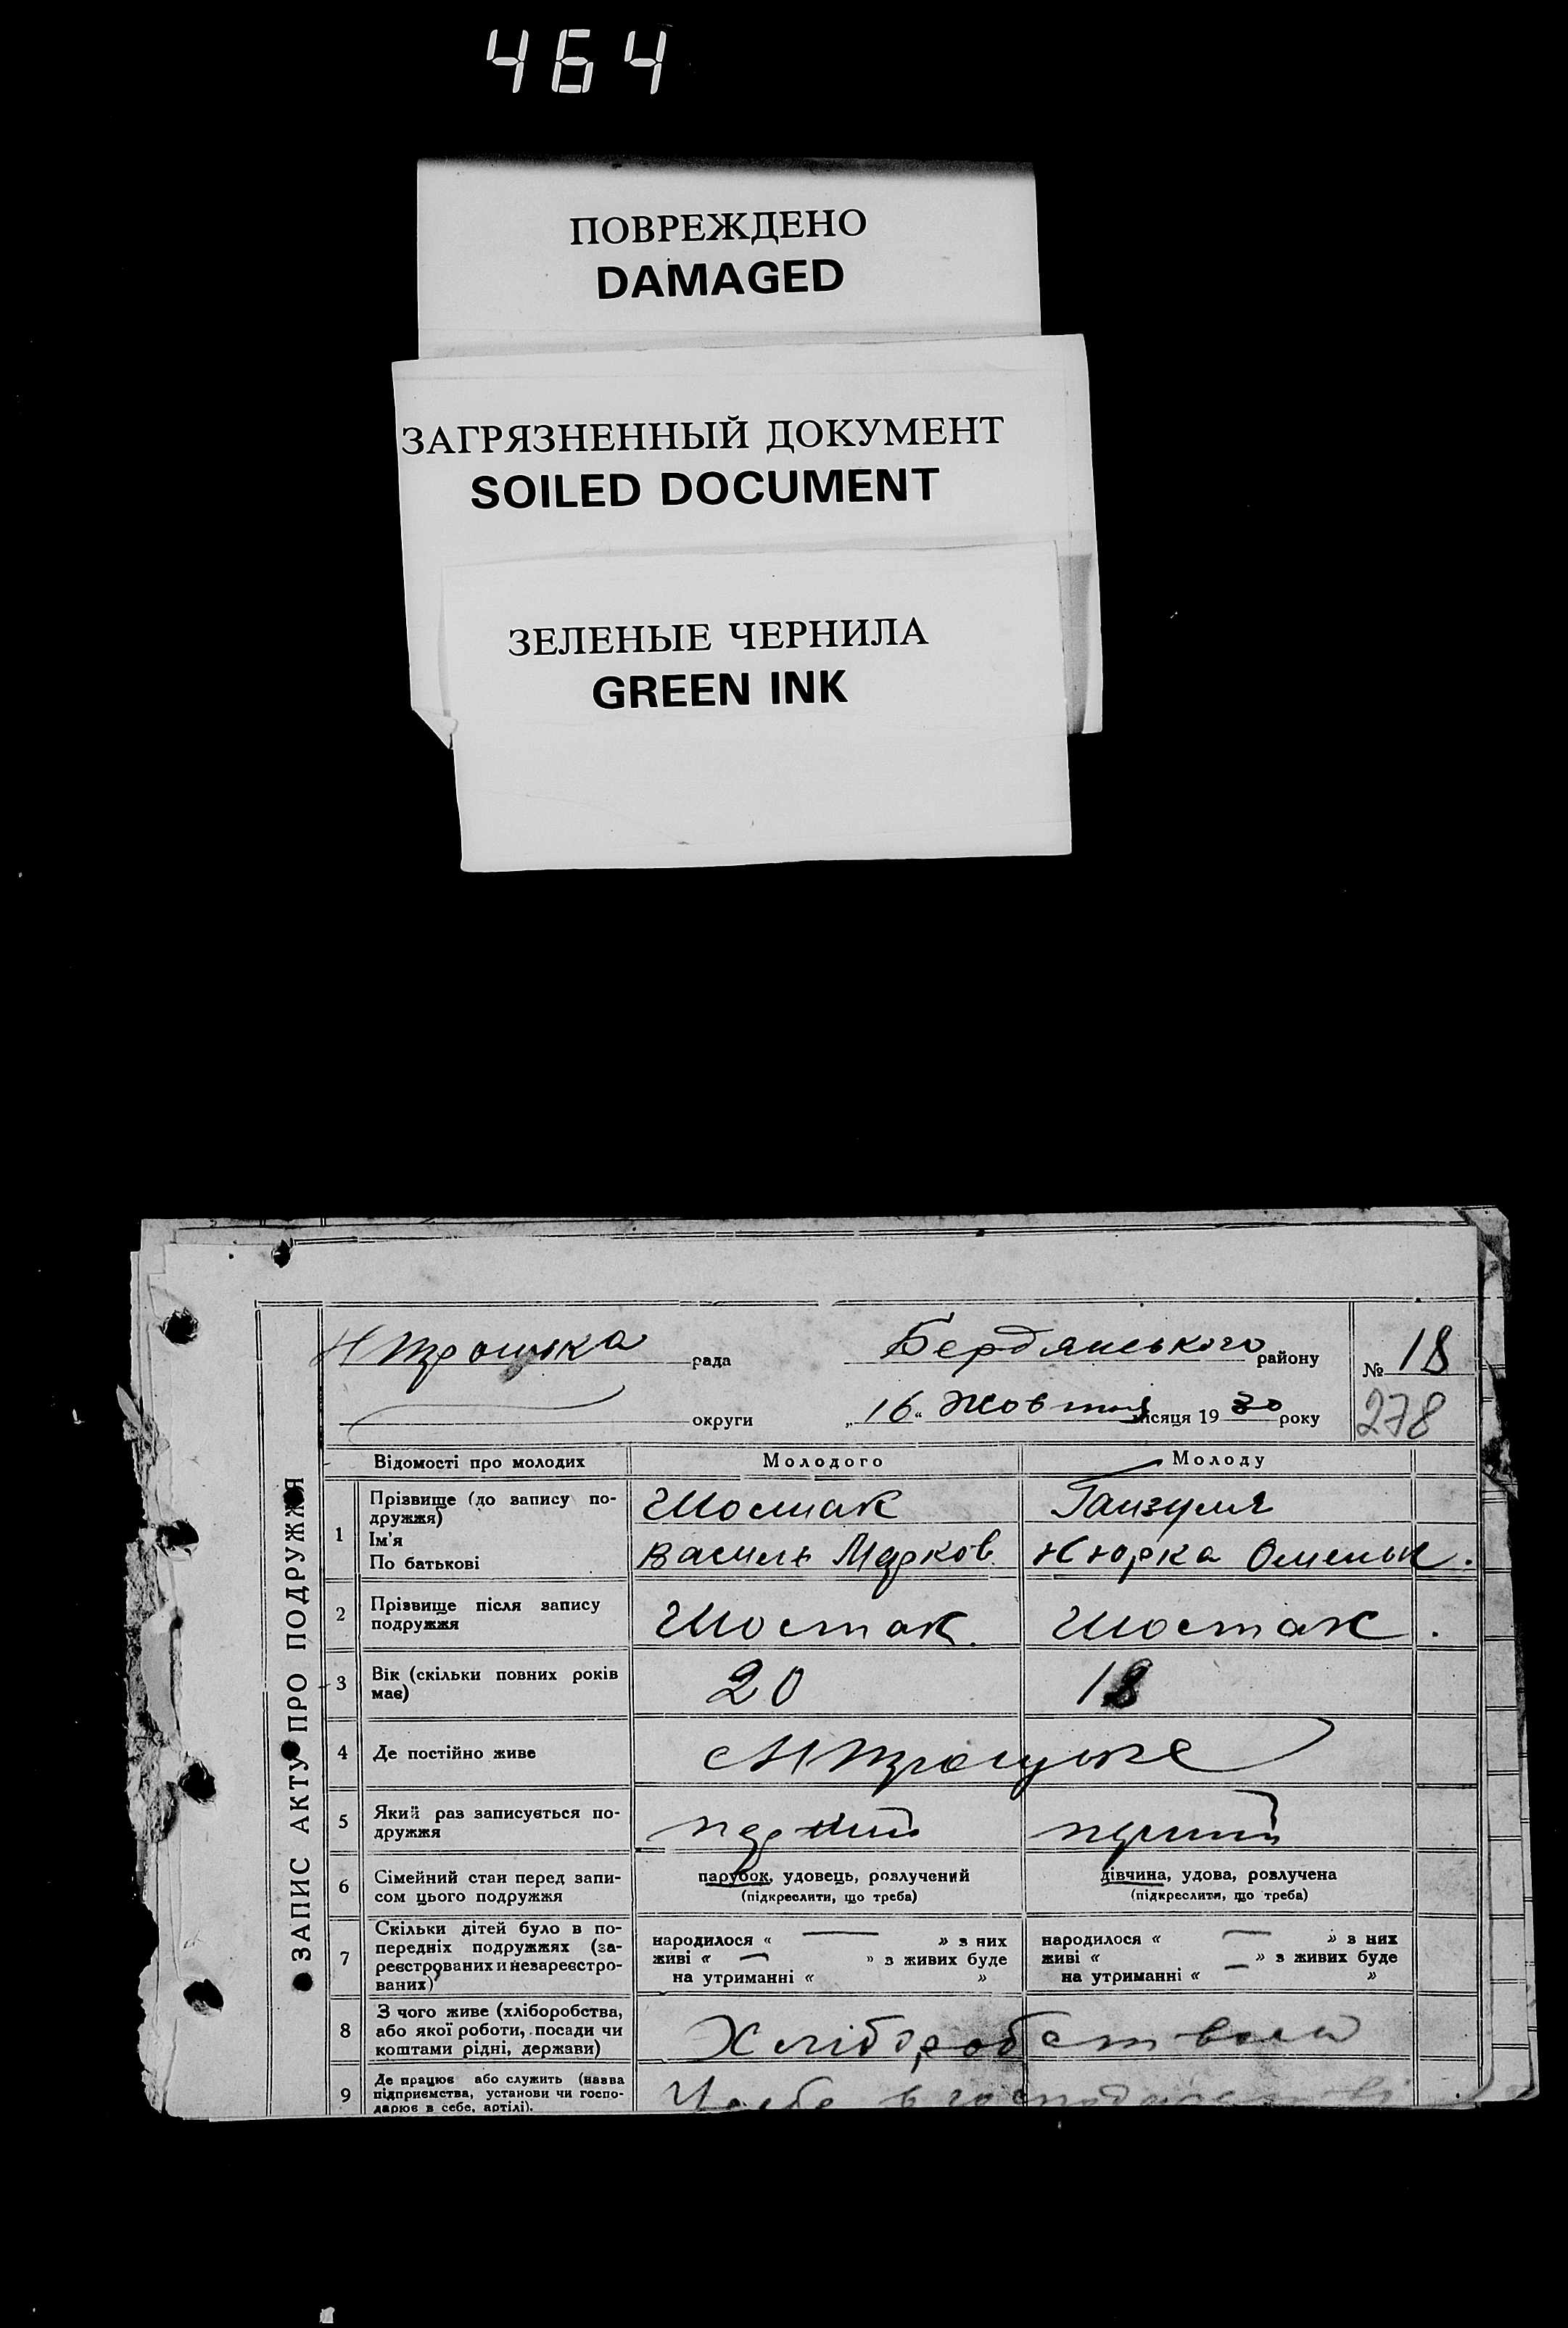 464
ПОВРЕЖДЕНО
DAMAGED
ЗАГРЯЗНЕННЫЙ ДОКУМЕНТ
SOILED DOCUMENT
ЗЕЛЕНЫЕ ЧЕРНИЛА
GREEN INK
ЗАПИС АКТУ ПРО ПОДРУЖЖЯ
рада Бердянського району № 18
округи „16“ Жовтня місяця 1930 року 278
Відомості про молодих Молодого Молоду
1 Прізвище (до запису по-
дружжя) Шостак
Ім'я
По батькові Василь Марков. Юрка Омельк.
2 Прізвище після запису
подружжя Шостак. Шостак.
3 Вік (скільки повних років
має) 20 18
4 Де постійно живе
5 Який раз записується по-
дружжя перший перший
6 Сімейний стан перед запи-
сом цього подружжя
парубок, удовець, розлучений
(підкреслити, що треба)
дівчина, удова, розлучена
(підкреслити, що треба)
7 Скільки дітей було в по-
передніх подружжях (за-
реєстрованих и незареєстро-
ваних)
народилося « — » з них
живі « — » з живих буде
на утриманні « »
народилося « — » з них
живі « — » з живих буде
на утриманні « »
8 З чого живе (хліборобства,
або якої роботи, посади чи
коштами рідні, держави) Хліборобством
9 Де працює або служить (назва
підприємства, установи чи госпо-
дарює в себе, артілі). У себе в господарстві